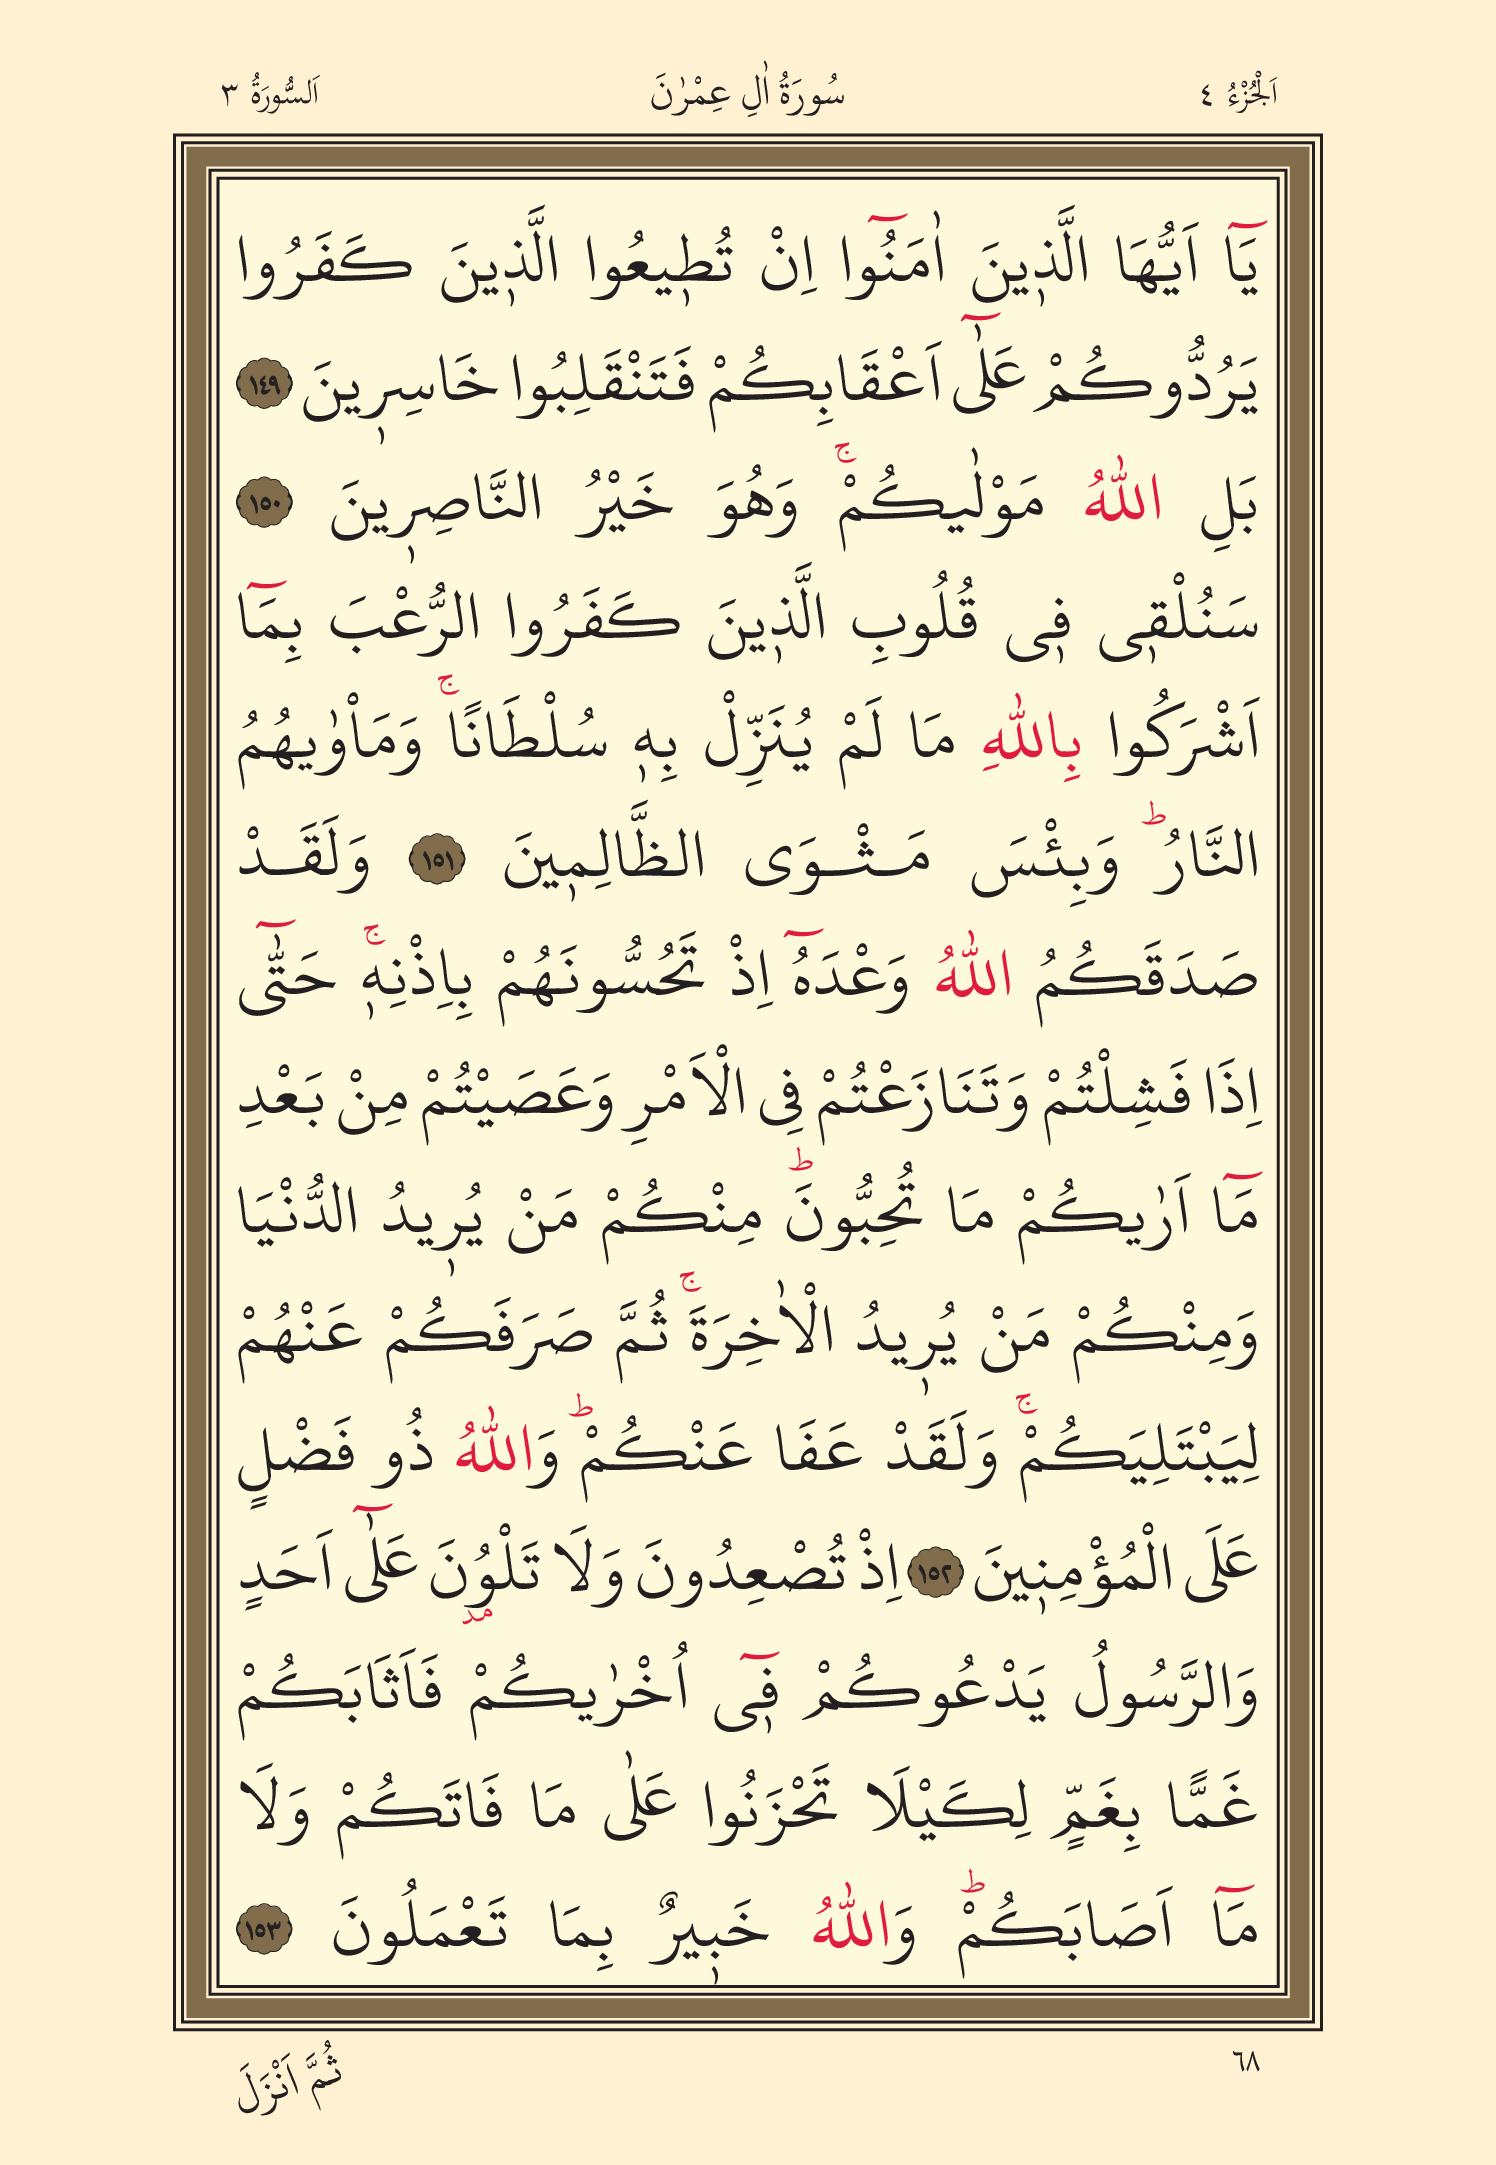 اَلْجُزْءُ ٤
سُورَةُ اٰلِ عِمْرٰنَ
اَلسُّورَةُ ٣
يَٓا اَيُّهَا الَّذ۪ينَ اٰمَنُٓوا اِنْ تُط۪يعُوا الَّذ۪ينَ كَفَرُوا
يَرُدُّوكُمْ عَلٰٓى اَعْقَابِكُمْ فَتَنْقَلِبُوا خَاسِر۪ينَ ﴿١٤٩﴾
بَلِ اللّٰهُ مَوْلٰيكُمْۚ وَهُوَ خَيْرُ النَّاصِر۪ينَ ﴿١٥٠﴾
سَنُلْق۪ى ف۪ى قُلُوبِ الَّذ۪ينَ كَفَرُوا الرُّعْبَ بِمَٓا
اَشْرَكُوا بِاللّٰهِ مَا لَمْ يُنَزِّلْ بِه۪ سُلْطَانًاۚ وَمَاْوٰيهُمُ
النَّارُۜ وَبِئْسَ مَثْوَى الظَّالِم۪ينَ ﴿١٥١﴾ وَلَقَدْ
صَدَقَكُمُ اللّٰهُ وَعْدَهُٓ اِذْ تَحُسُّونَهُمْ بِاِذْنِه۪ۚ حَتّٰٓى
اِذَا فَشِلْتُمْ وَتَنَازَعْتُمْ فِى الْاَمْرِ وَعَصَيْتُمْ مِنْ بَعْدِ
مَٓا اَرٰيكُمْ مَا تُحِبُّونَۜ مِنْكُمْ مَنْ يُر۪يدُ الدُّنْيَا
وَمِنْكُمْ مَنْ يُر۪يدُ الْاٰخِرَةَۚ ثُمَّ صَرَفَكُمْ عَنْهُمْ
لِيَبْتَلِيَكُمْۚ وَلَقَدْ عَفَا عَنْكُمْۜ وَاللّٰهُ ذُو فَضْلٍ
عَلَى الْمُؤْمِن۪ينَ ﴿١٥٢﴾ اِذْ تُصْعِدُونَ وَلَا تَلْوُ۫نَ عَلٰٓى اَحَدٍ
مد
وَالرَّسُولُ يَدْعُوكُمْ ف۪ٓى اُخْرٰيكُمْ فَاَثَابَكُمْ
غَمًّا بِغَمٍّ لِكَيْلَا تَحْزَنُوا عَلٰى مَا فَاتَكُمْ وَلَا
مَٓا اَصَابَكُمْۜ وَاللّٰهُ خَب۪يرٌ بِمَا تَعْمَلُونَ ﴿١٥٣﴾
٦٨
ثُمَّ اَنْزَلَ